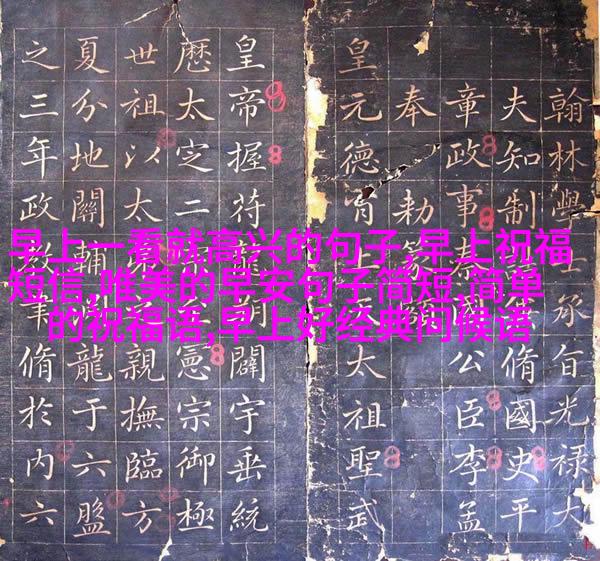 早上一看就高兴的句子,早上祝福
短信,唯美的早安句子简短,简单
的祝福语,早上好经典问候语
翰林學士承旨光祿大
夫知制脩國史平
章政事蔡國公臣李孟
奉勅
皇元德冑上太祖聖武
皇帝握符龍朔闢宇垂統
厯太定二宗憲宗御極
世祖以太弟親撫臨方
夏分地關輔龍于六盤
之三年政教肇脩於内六